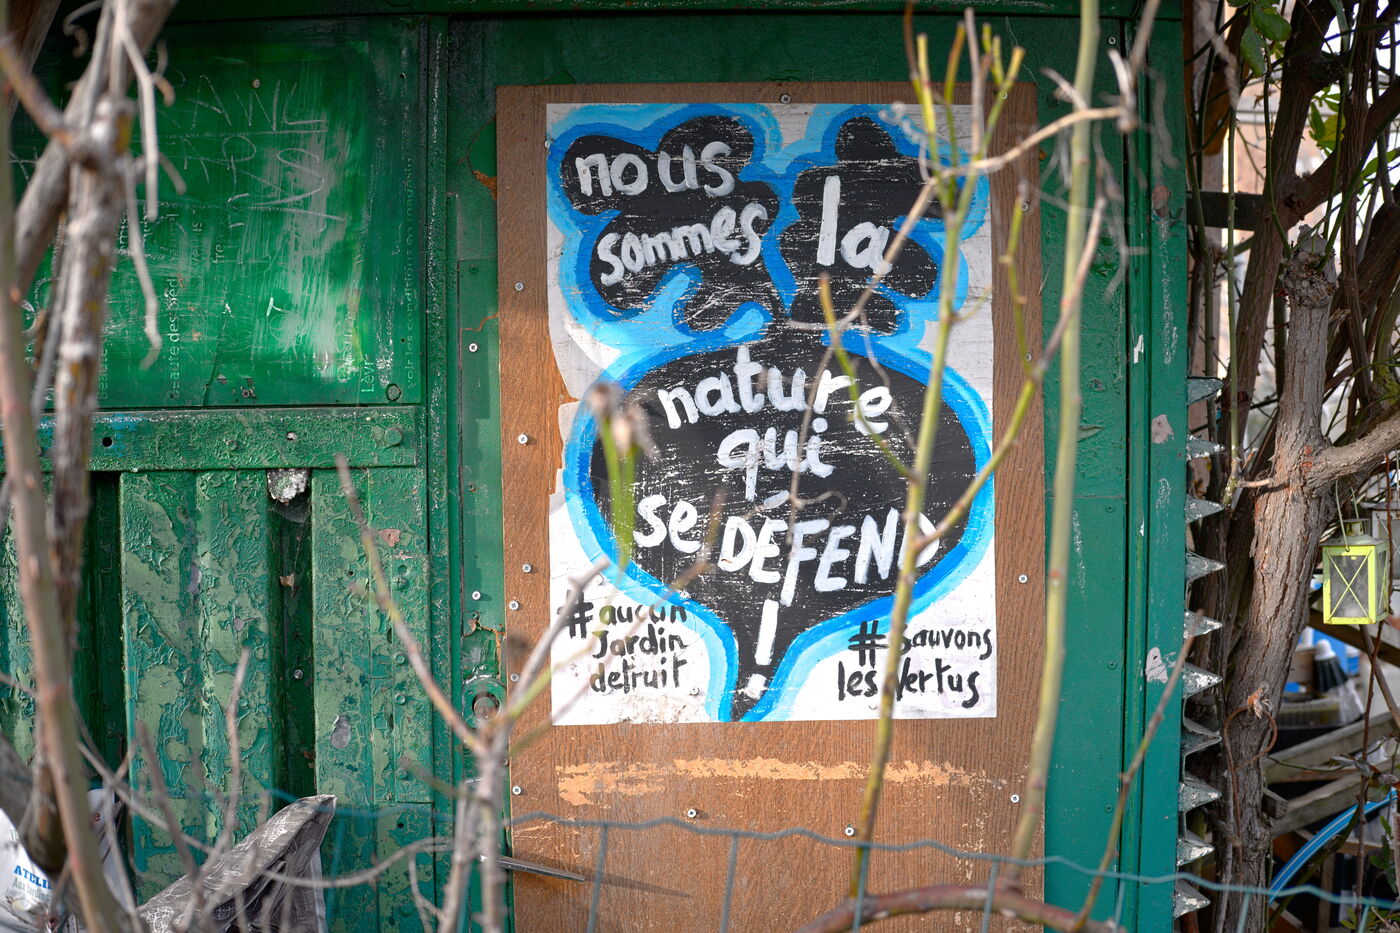 nous
sommes
la
nature
qui
se DÉFEND
!
#aucun
Jardin
detruit
#Sauvons
les Vertus
ATELI